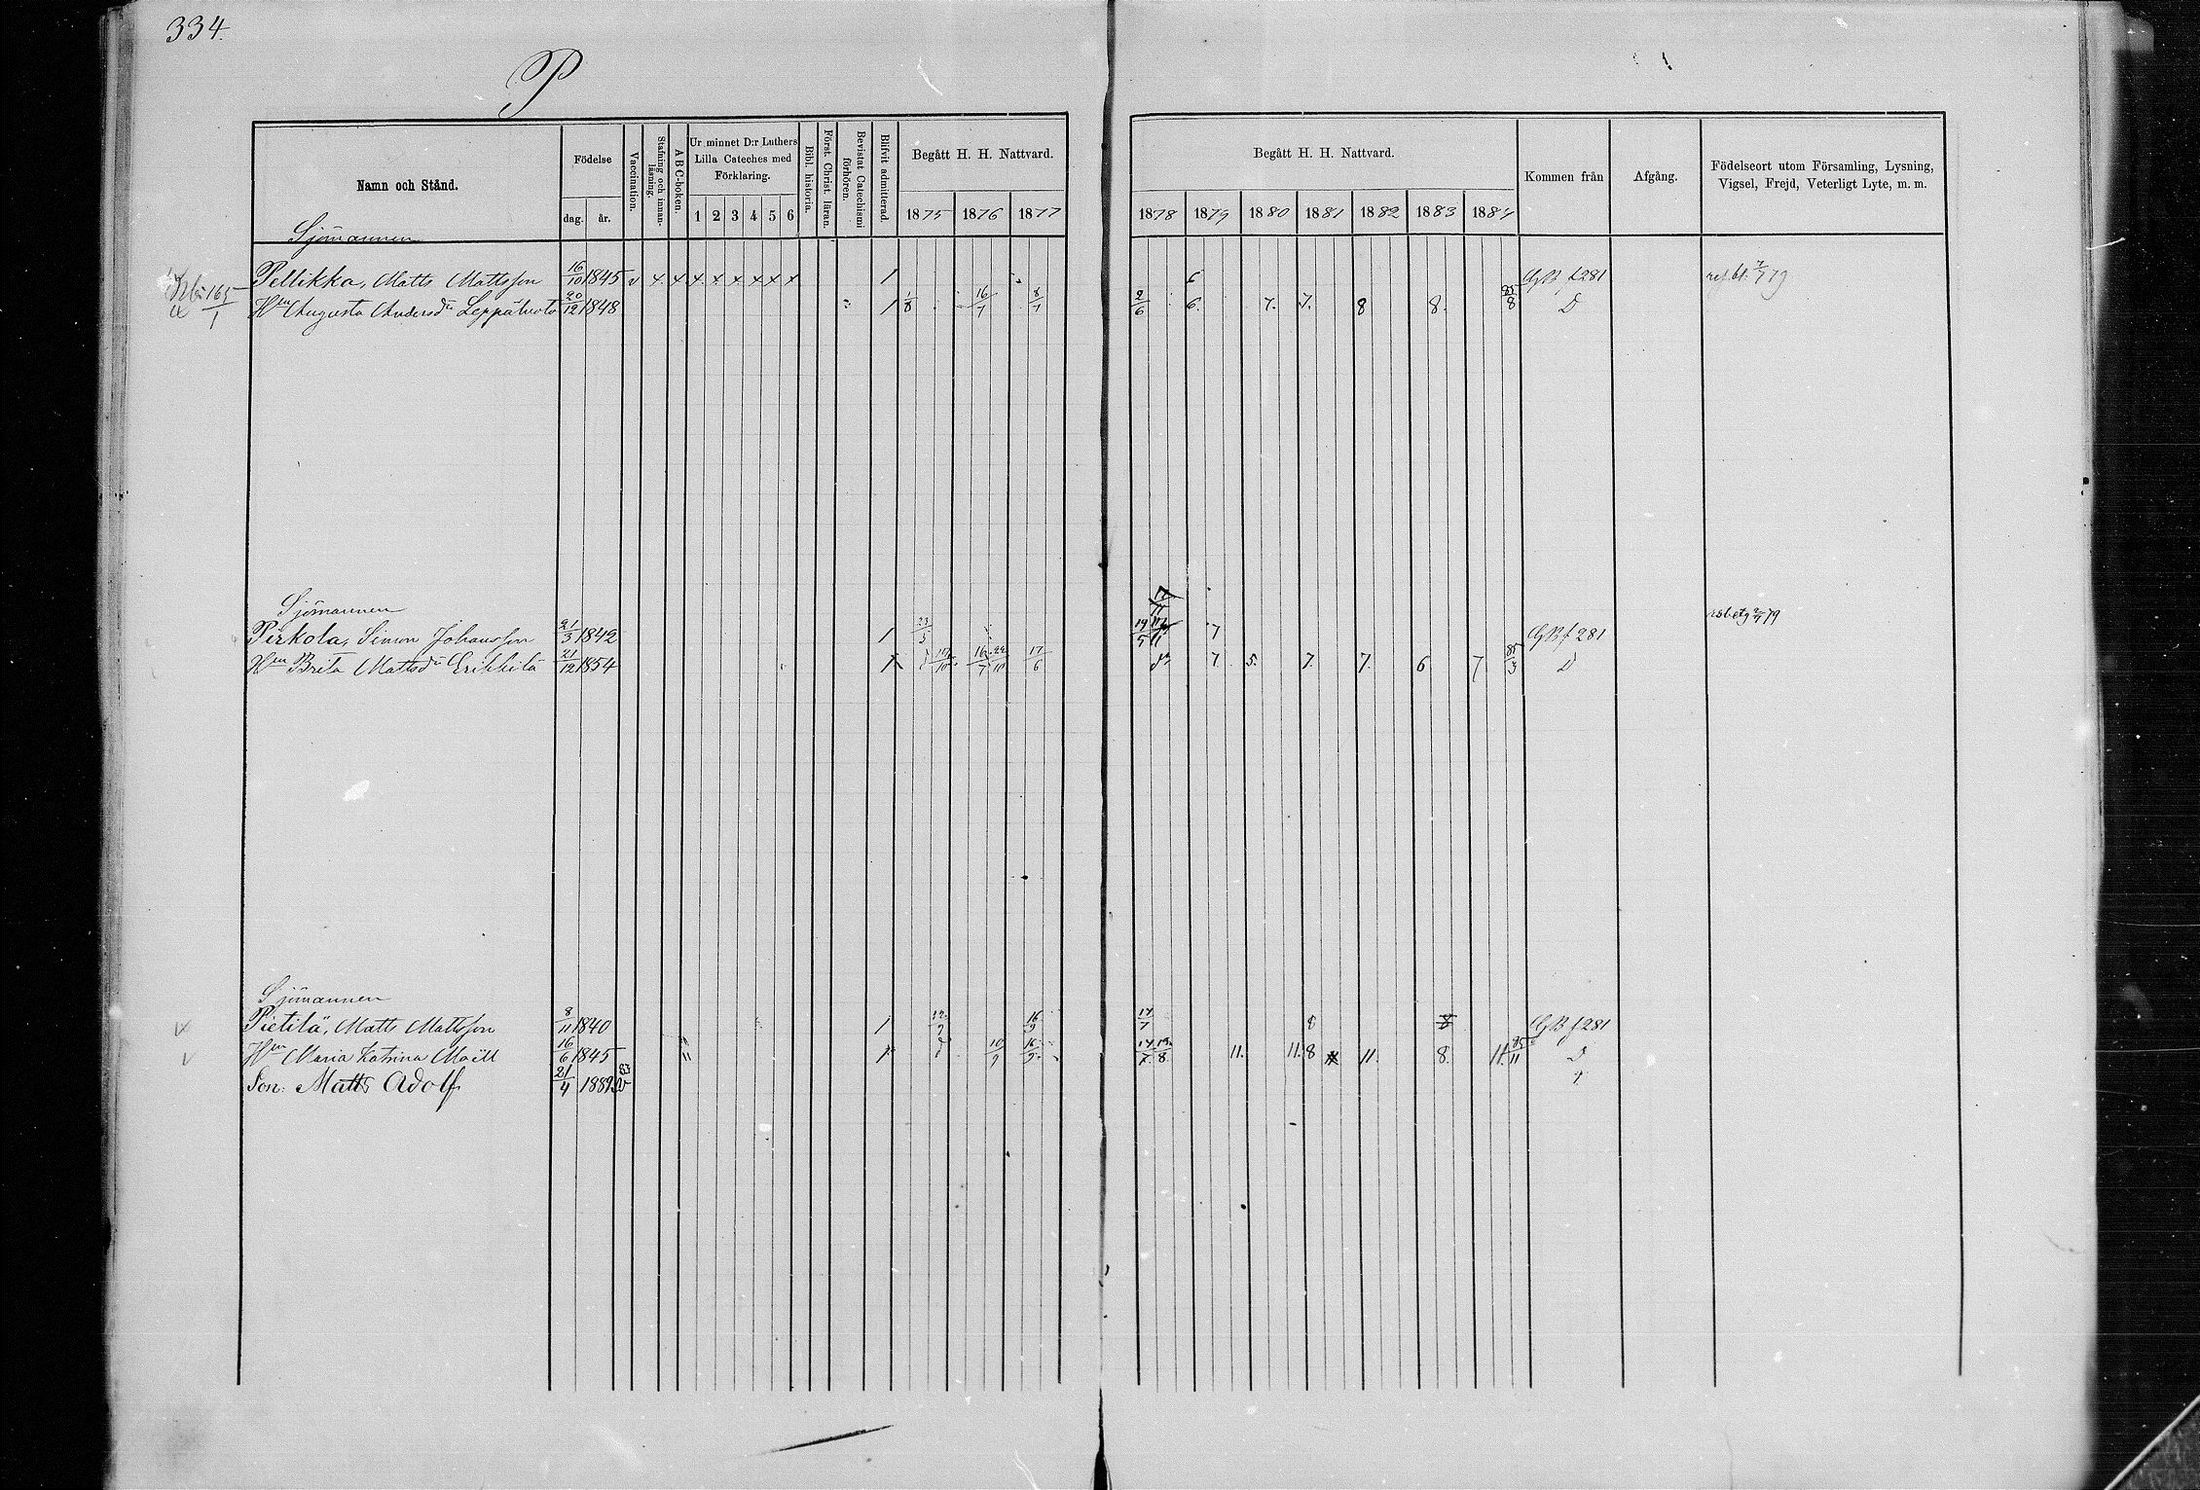 334.
P
Namn och Stånd.
Födelse
dag. år.
Vaccination.
Stafning och innanläsning.
A B C-boken.
Ur minnet D:r Luthers Lilla Cateches med Förklaring.
1 2 3 4 5 6
Bibl. historia.
Först. Christ. läran.
Bevistat Catechismi förhören.
Blifvit admitterad.
Begått H. H. Nattvard.
1875 1876 1877
Begått H. H. Nattvard.
1878 1879 1880 1881 1882 1883 1884
Kommen från
Afgång.
Födelseort utom Församling, Lysning, Vigsel, Frejd, Veterligt Lyte, m. m.
Sjömannen
Pellikka, Matts Mattsson 16/10 1845 v x x x x x x x x 1 6 GB f 281
Hun Augusta Andersdr Leppäluoto 20/12 1848 1 1/8 16/7 8/7 2/6 6. 7. 7. 8 8. 85/8 D
Sjömannen
Pirkola, Simon Johansson 21/3 1842 1 23/5 19/5 7 GB f 281
Hun Brita Mattsdr Erikkilä 21/12 1854 16/7 17/6 7 5. 7. 7. 6 7 D
Sjömannen
Pietilä, Matts Mattsson 8/11 1840 1 16/9 17/7 8 GB f 281
Hun Maria Katrina 16/6 1845 10/9 11. 11. 8 11. 8. 11. 85/11 D
Son: Matts Adolf 21/4 1882